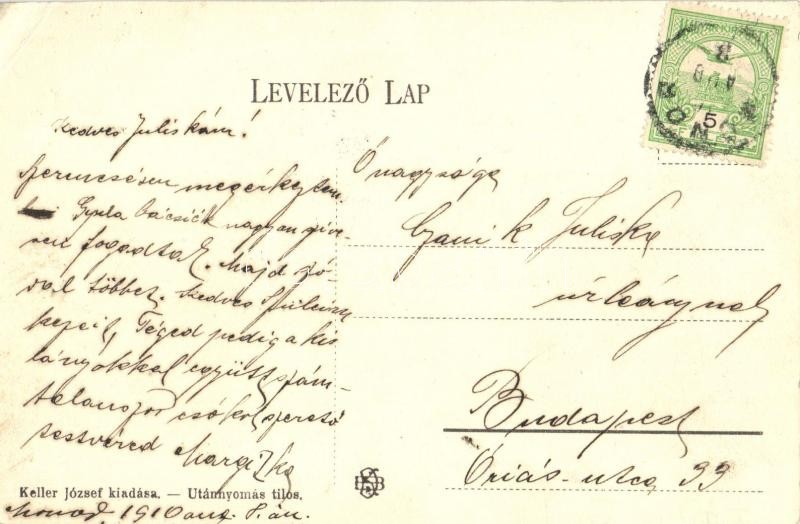 LEVELEZŐ LAP
Kedves Juliskám!
Szerencsésen megérkeztem.
Gyula bácsiék nagyon szive-
sen fogadtak. Majd szó-
val többet. Kedves Szüleim
képeit, Téged pedig a kis
lányokkal együtt szám-
talanszor csókol szerető
testvéred Margitka
Ő nagysága
Juliska
úrleánynak
Budapest
Óriás-utca 33
5
Keller József kiadása. — Utánnyomás tilos.
1910 aug. 8.án.